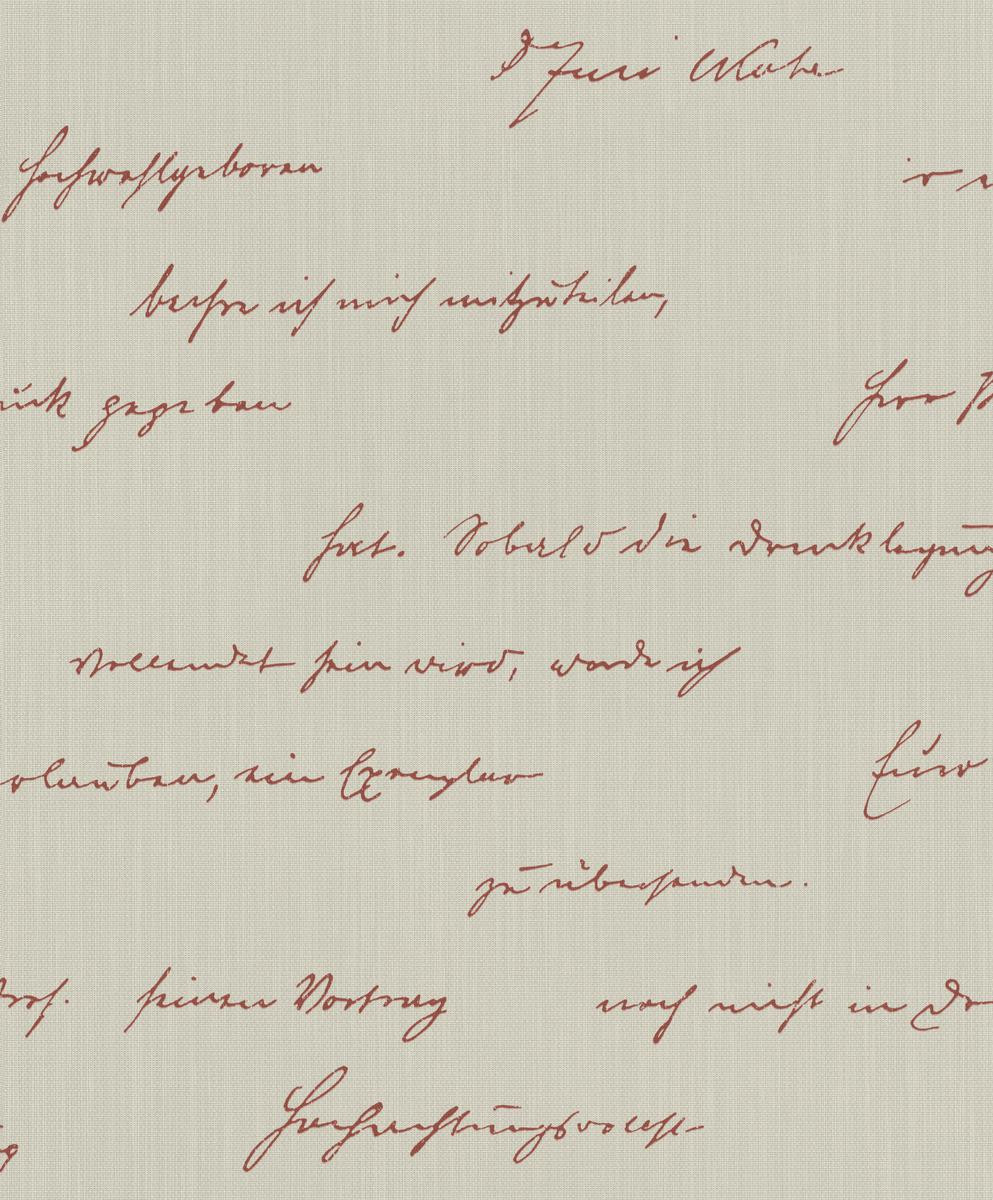 Hochwohlgeboren
beehre ich mich mitzuteilen,
gegeben Herr
hat. Sobald die Drucklegung
vollendet sein wird, werde ich
erlauben, ein Exemplar Euer
zu übersenden.
Prof. seinen Vortrag noch nicht in
Hochachtungsvollst